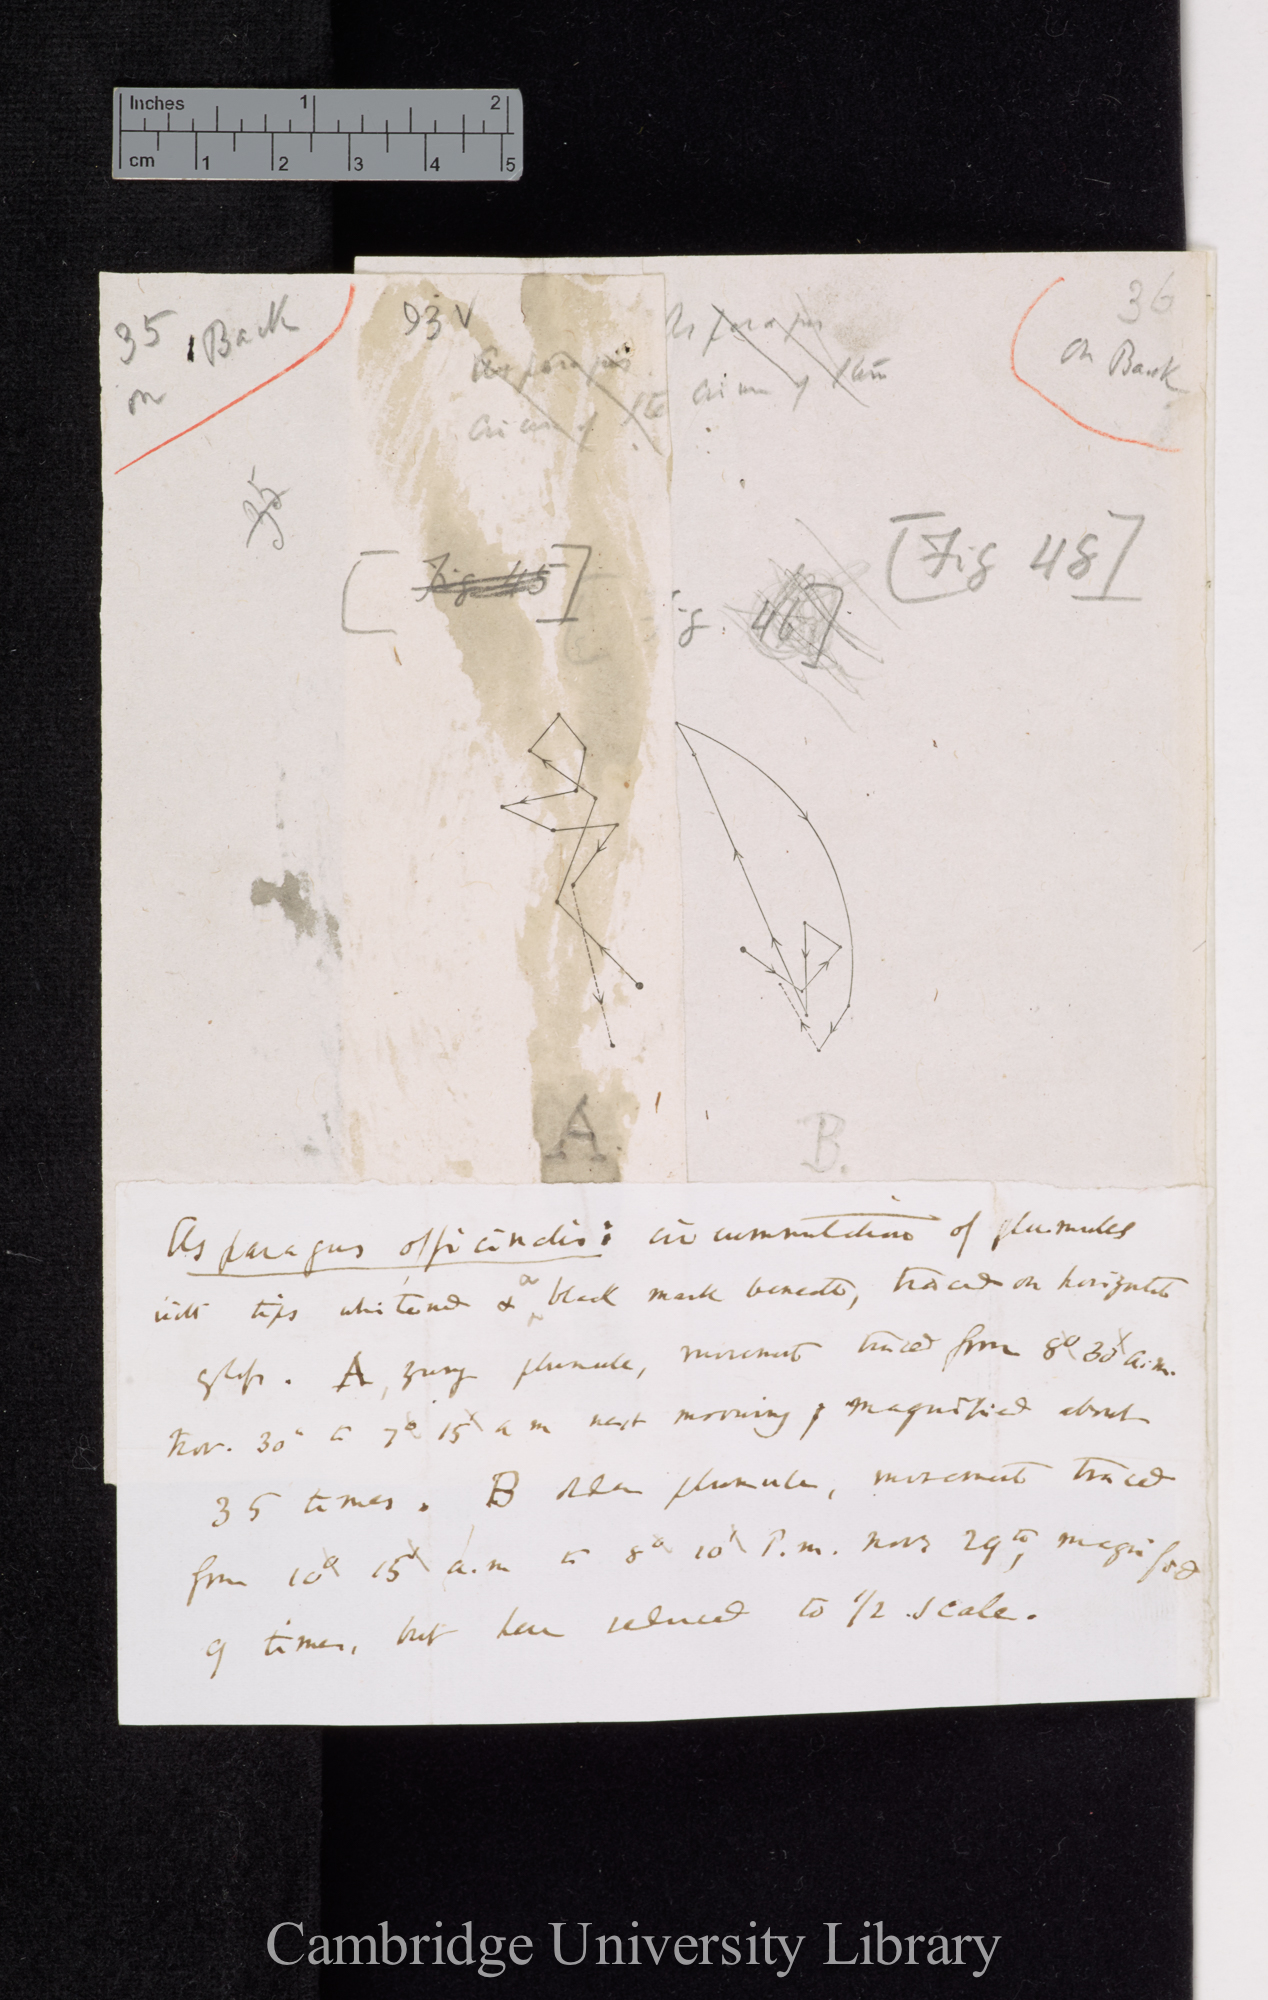 Inches 1 2
cm 1 2 3 4 5
35 Back
on
93 v
Asparagus
Circum of
Asparagus
Circum of
36
on Back
35
[Fig 45]
ig. 46]
[Fig 48]
A.
B.
Asparagus officinalis: circumnutation of plumules
with tips whitened & a black mark beneath, traced on horizontal
glass. A, young plumule, movement traced from 8° 30' a.m.
Nov. 30th to 7° 15' a m next morning; magnified about
35 times. B older plumule, movement traced
from 10° 15' a.m to 8° 10' P.m. Nov 29th, magnified
9 times, but here reduced to 1/2 scale.
Cambridge University Library